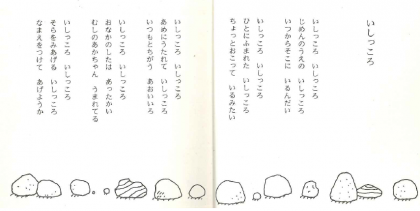 いしっころ
いしっころ　いしっころ
じめんのうえの　いしっころ
いつからそこに　いるんだい
いしっころ　いしっころ
ひとにふまれた　いしっころ
ちょっとおこって　いるみたい
いしっころ　いしっころ
あめにうたれて　いしっころ
いつもとちがう　あおいいろ
おなかのしたは　あったかい
むしのあかちゃん　うまれてる
いしっころ　いしっころ
そらをみあげる　いしっころ
なまえをつけて　あげようか